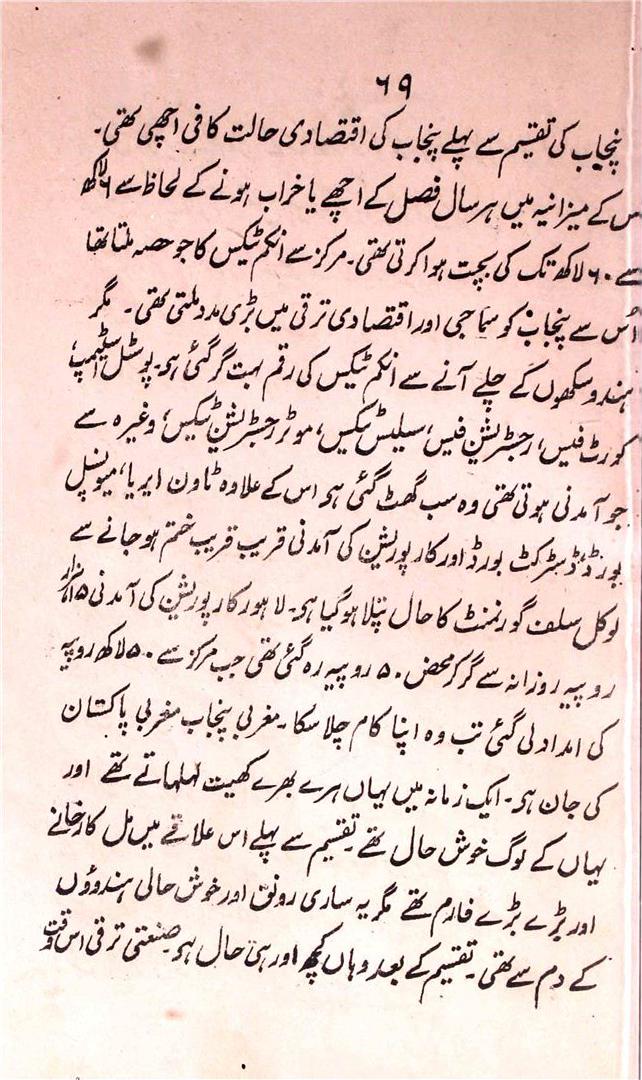 ۶۹
پنجاب کی تقسیم سے پہلے پنجاب کی اقتصادی حالت کافی اچھی تھی۔
اس کے میزانیہ میں ہر سال فصل کے اچھے یا خراب ہونے کے لحاظ سے ۶ لاکھ
سے ۶۰ لاکھ تک کی بچت ہوا کرتی تھی۔ مرکز سے انکم ٹیکس کا جو حصہ ملتا تھا
اُس سے پنجاب کو سماجی اور اقتصادی ترقی میں بڑی مدد ملتی تھی۔ مگر
ہندو سکھوں کے چلے آنے سے انکم ٹیکس کی رقم بہت گر گئی ہے۔ پوسٹل اسٹیمپ،
کورٹ فیس، رجسٹریشن فیس، سیلیس ٹیکس، موٹر رجسٹریشن ٹیکس، وغیرہ سے
جو آمدنی ہوتی تھی وہ سب گھٹ گئی ہے اس کے علاوہ ٹاون ایریا، میونسپل
بورڈ، ڈسٹرکٹ بورڈ اور کارپوریشن کی آمدنی قریب قریب ختم ہو جانے سے
لوکل سلف گورنمنٹ کا حال پتلا ہو گیا ہے۔ لاہور کارپوریشن کی آمدنی ۱۵ ہزار
روپیہ روزانہ سے گر کر محض ۵۰ روپیہ رہ گئی تھی جب مرکز سے ۵۰ لاکھ روپیہ
کی امداد لی گئی تب وہ اپنا کام چلا سکا۔ مغربی پنجاب مغربی پاکستان
کی جان ہے۔ ایک زمانہ میں یہاں ہرے بھرے کھیت لہلہاتے تھے اور
یہاں کے لوگ خوش حال تھے۔ تقسیم سے پہلے اس علاقے میں مل کارخانے
اور بڑے بڑے فارم تھے مگر یہ ساری رونق اور خوش حالی ہندوؤں
کے دم سے تھی۔ تقسیم کے بعد وہاں کچھ اور ہی حال ہے۔ صنعتی ترقی اس وقت